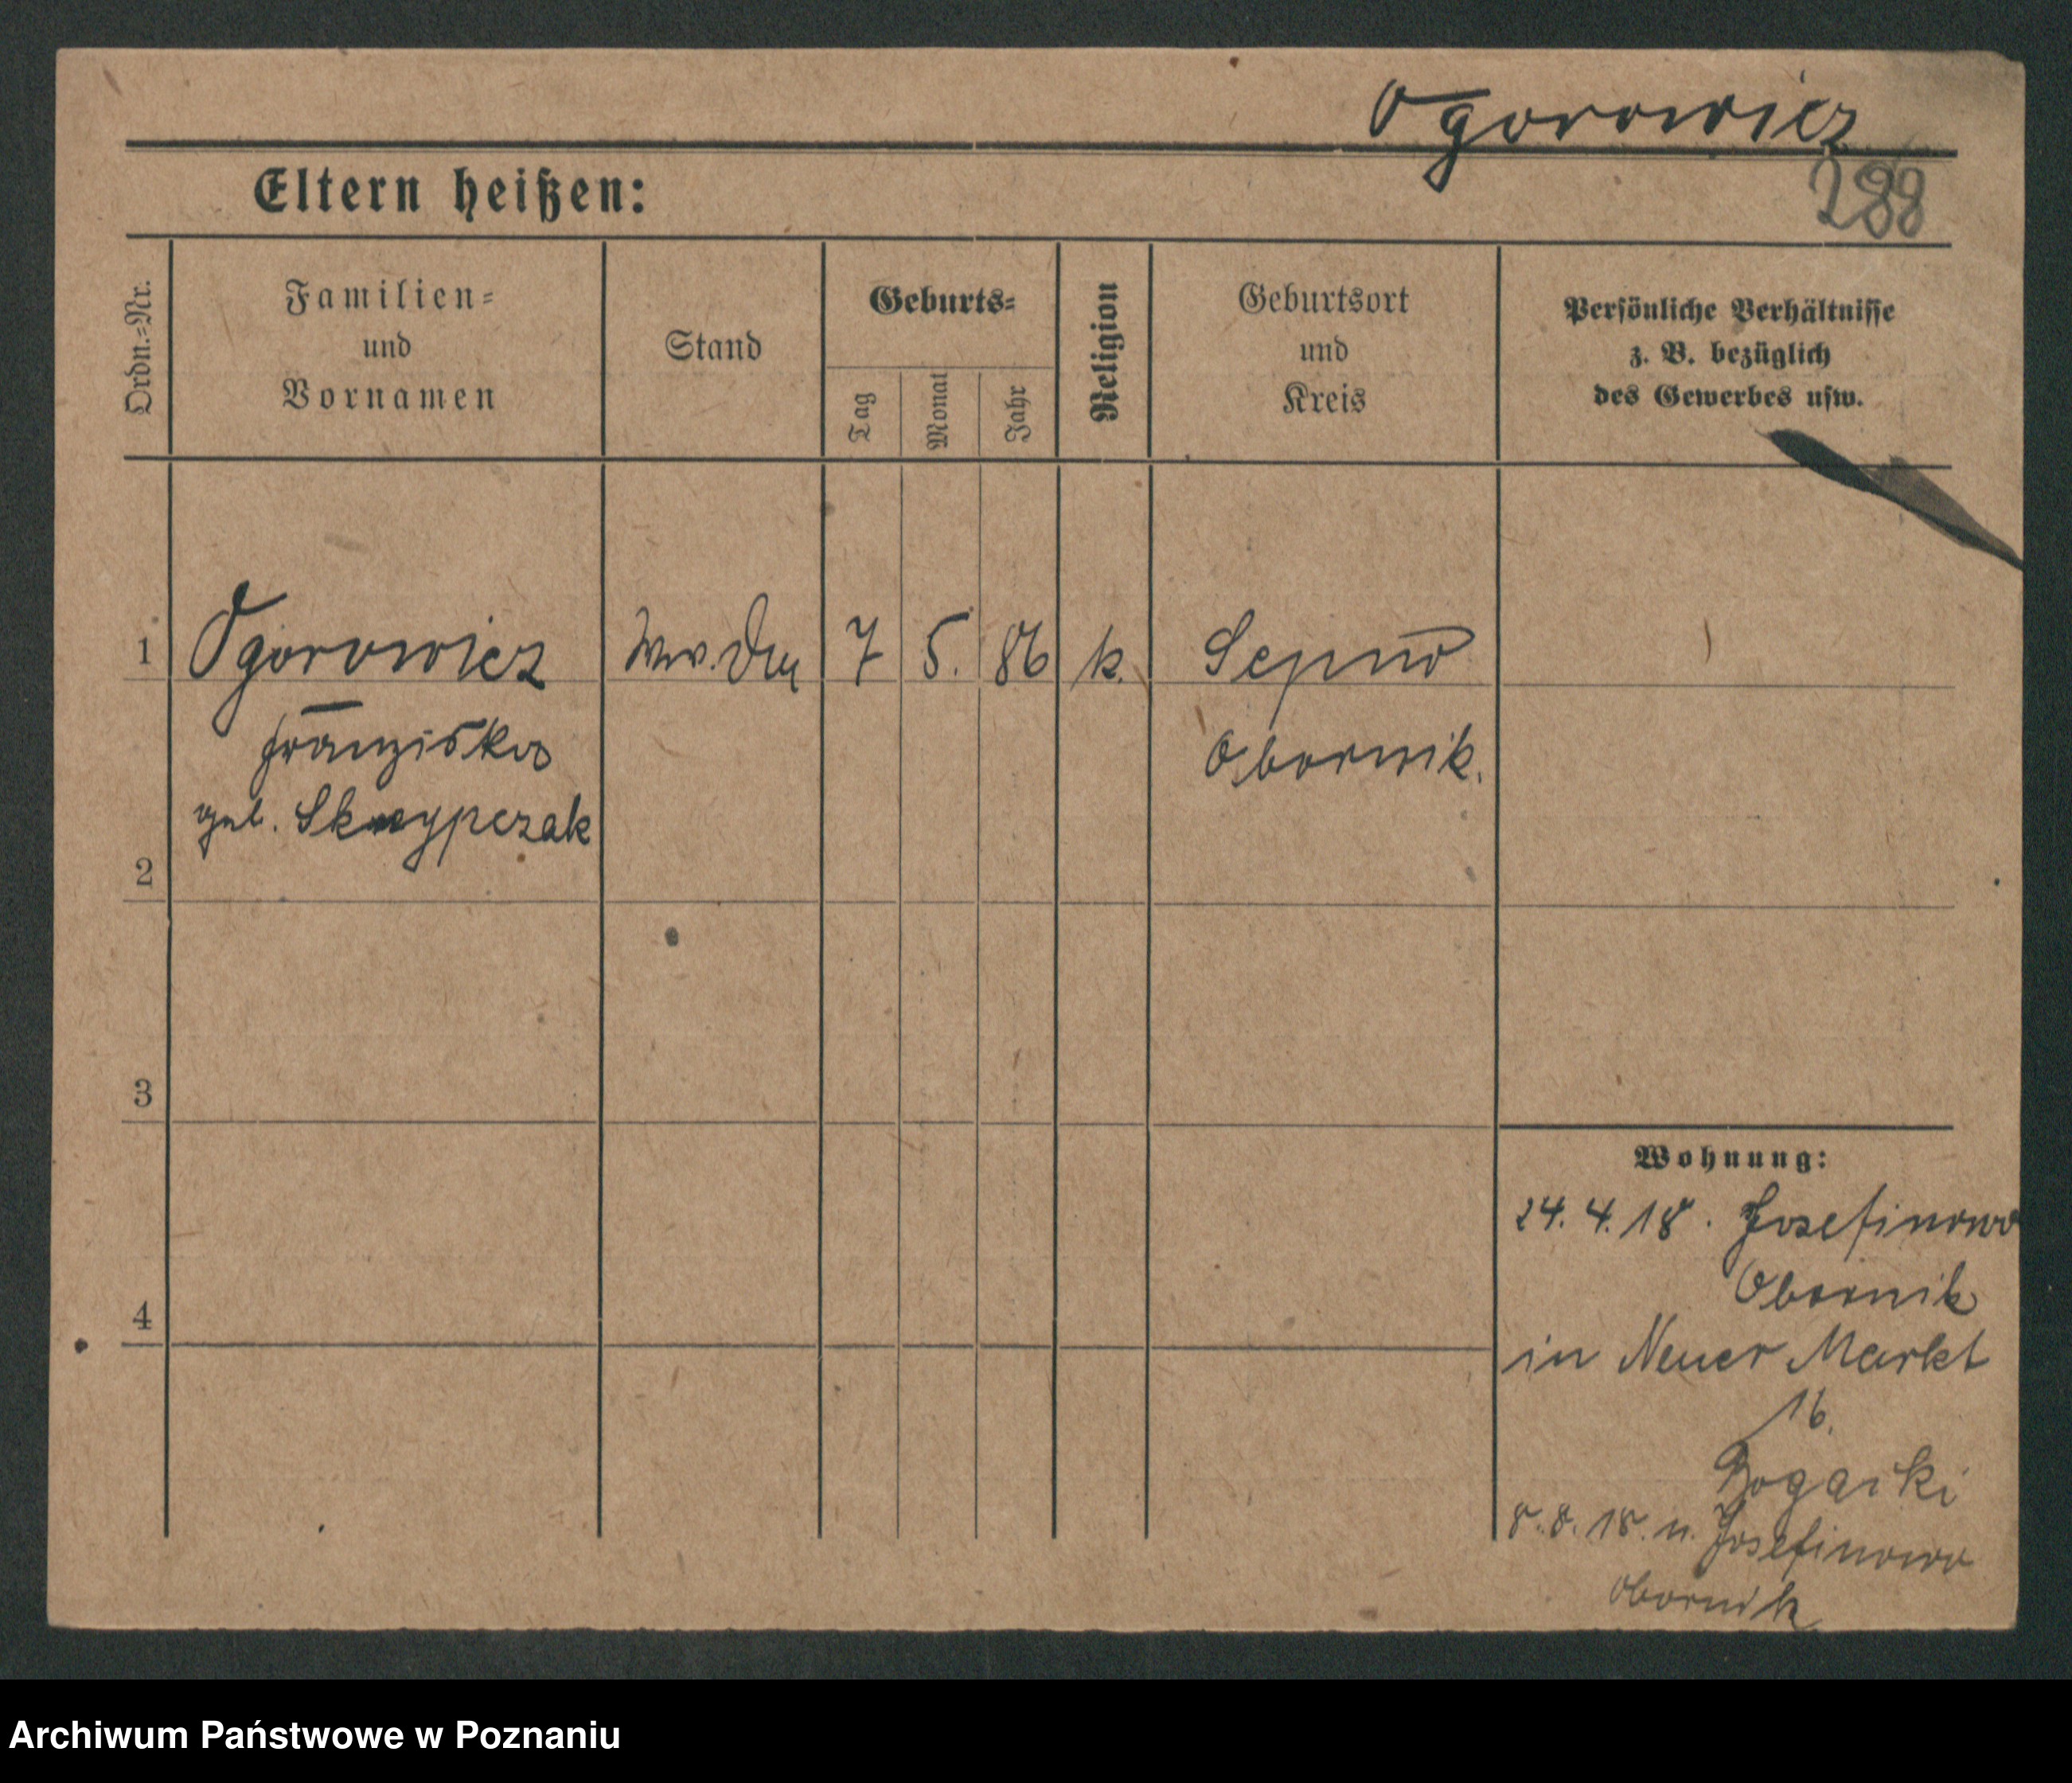 Ogorowicz
288
Eltern heißen:
Ordn.=Nr.
Familien=
und
Vornamen
Stand
Geburts=
Tag
Monat
Jahr
Religion
Geburtsort
und
Kreis
Persönliche Verhältnisse
z. B. bezüglich
des Gewerbes usw.
1 Ogorowicz 7 5. 86 k.
Franziska Obornik.
geb.
2
3
4
Wohnung:
24. 4. 18. Josefinowo
Obornik
in Neuer Markt
16.
8. 8. 18. n. Josefinowo
Obornik
Archiwum Państwowe w Poznaniu